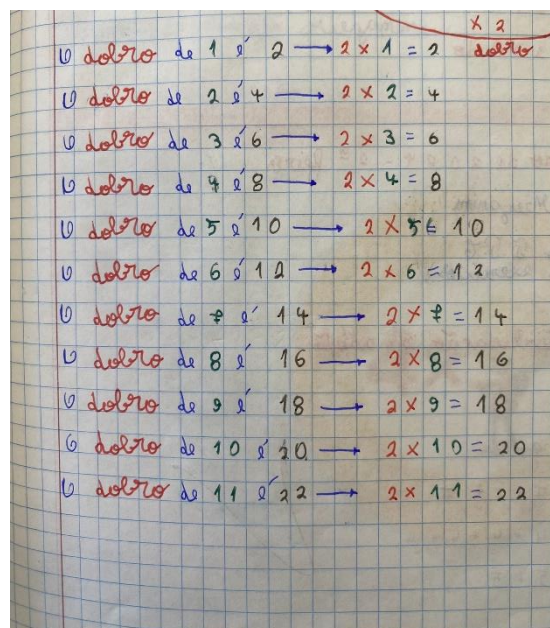 x 2
dobro
O dobro de 1 é 2 → 2 x 1 = 2
O dobro de 2 é 4 → 2 x 2 = 4
O dobro de 3 é 6 → 2 x 3 = 6
O dobro de 4 é 8 → 2 x 4 = 8
O dobro de 5 é 10 → 2 x 5 = 10
O dobro de 6 é 12 → 2 x 6 = 12
O dobro de 7 é 14 → 2 x 7 = 14
O dobro de 8 é 16 → 2 x 8 = 16
O dobro de 9 é 18 → 2 x 9 = 18
O dobro de 10 é 20 → 2 x 10 = 20
O dobro de 11 é 22 → 2 x 11 = 22